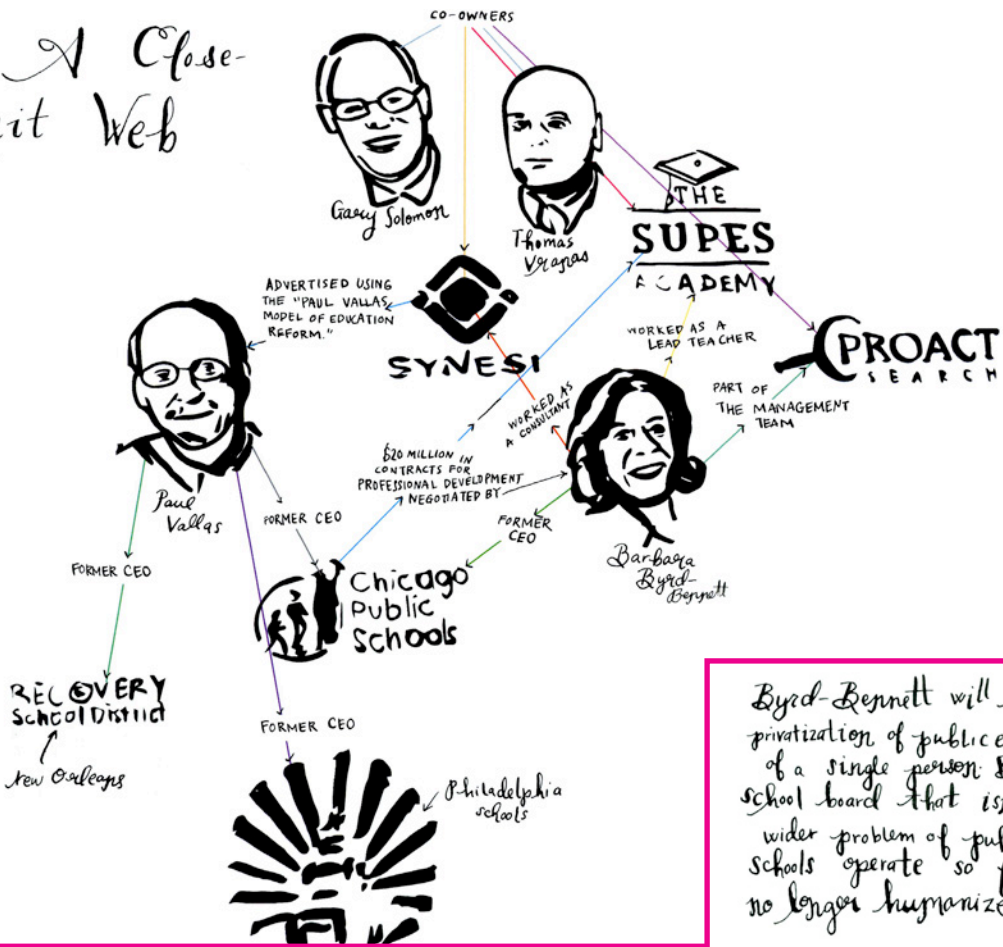 A Close-
it Web
CO-OWNERS
Gary Solomon
Thomas
Vranas
THE
SUPES
ACADEMY
ADVERTISED USING
THE "PAUL VALLAS
MODEL OF EDUCATION
REFORM."
SYNESI
WORKED AS A
LEAD TEACHER
PROACT
SEARCH
PART OF
THE MANAGEMENT
TEAM
WORKED AS
A CONSULTANT
$20 MILLION IN
CONTRACTS FOR
PROFESSIONAL DEVELOPMENT
NEGOTIATED BY
Paul
Vallas
FORMER CEO
FORMER
CEO
Barbara
Byrd-
Bennett
FORMER CEO
Chicago
Public
Schools
RECOVERY
School District
New Orleans
FORMER CEO
Philadelphia
schools
Byrd-Bennett will
privatization of public
of a single person.
school board that
wider problem of
schools operate so
no longer humanize